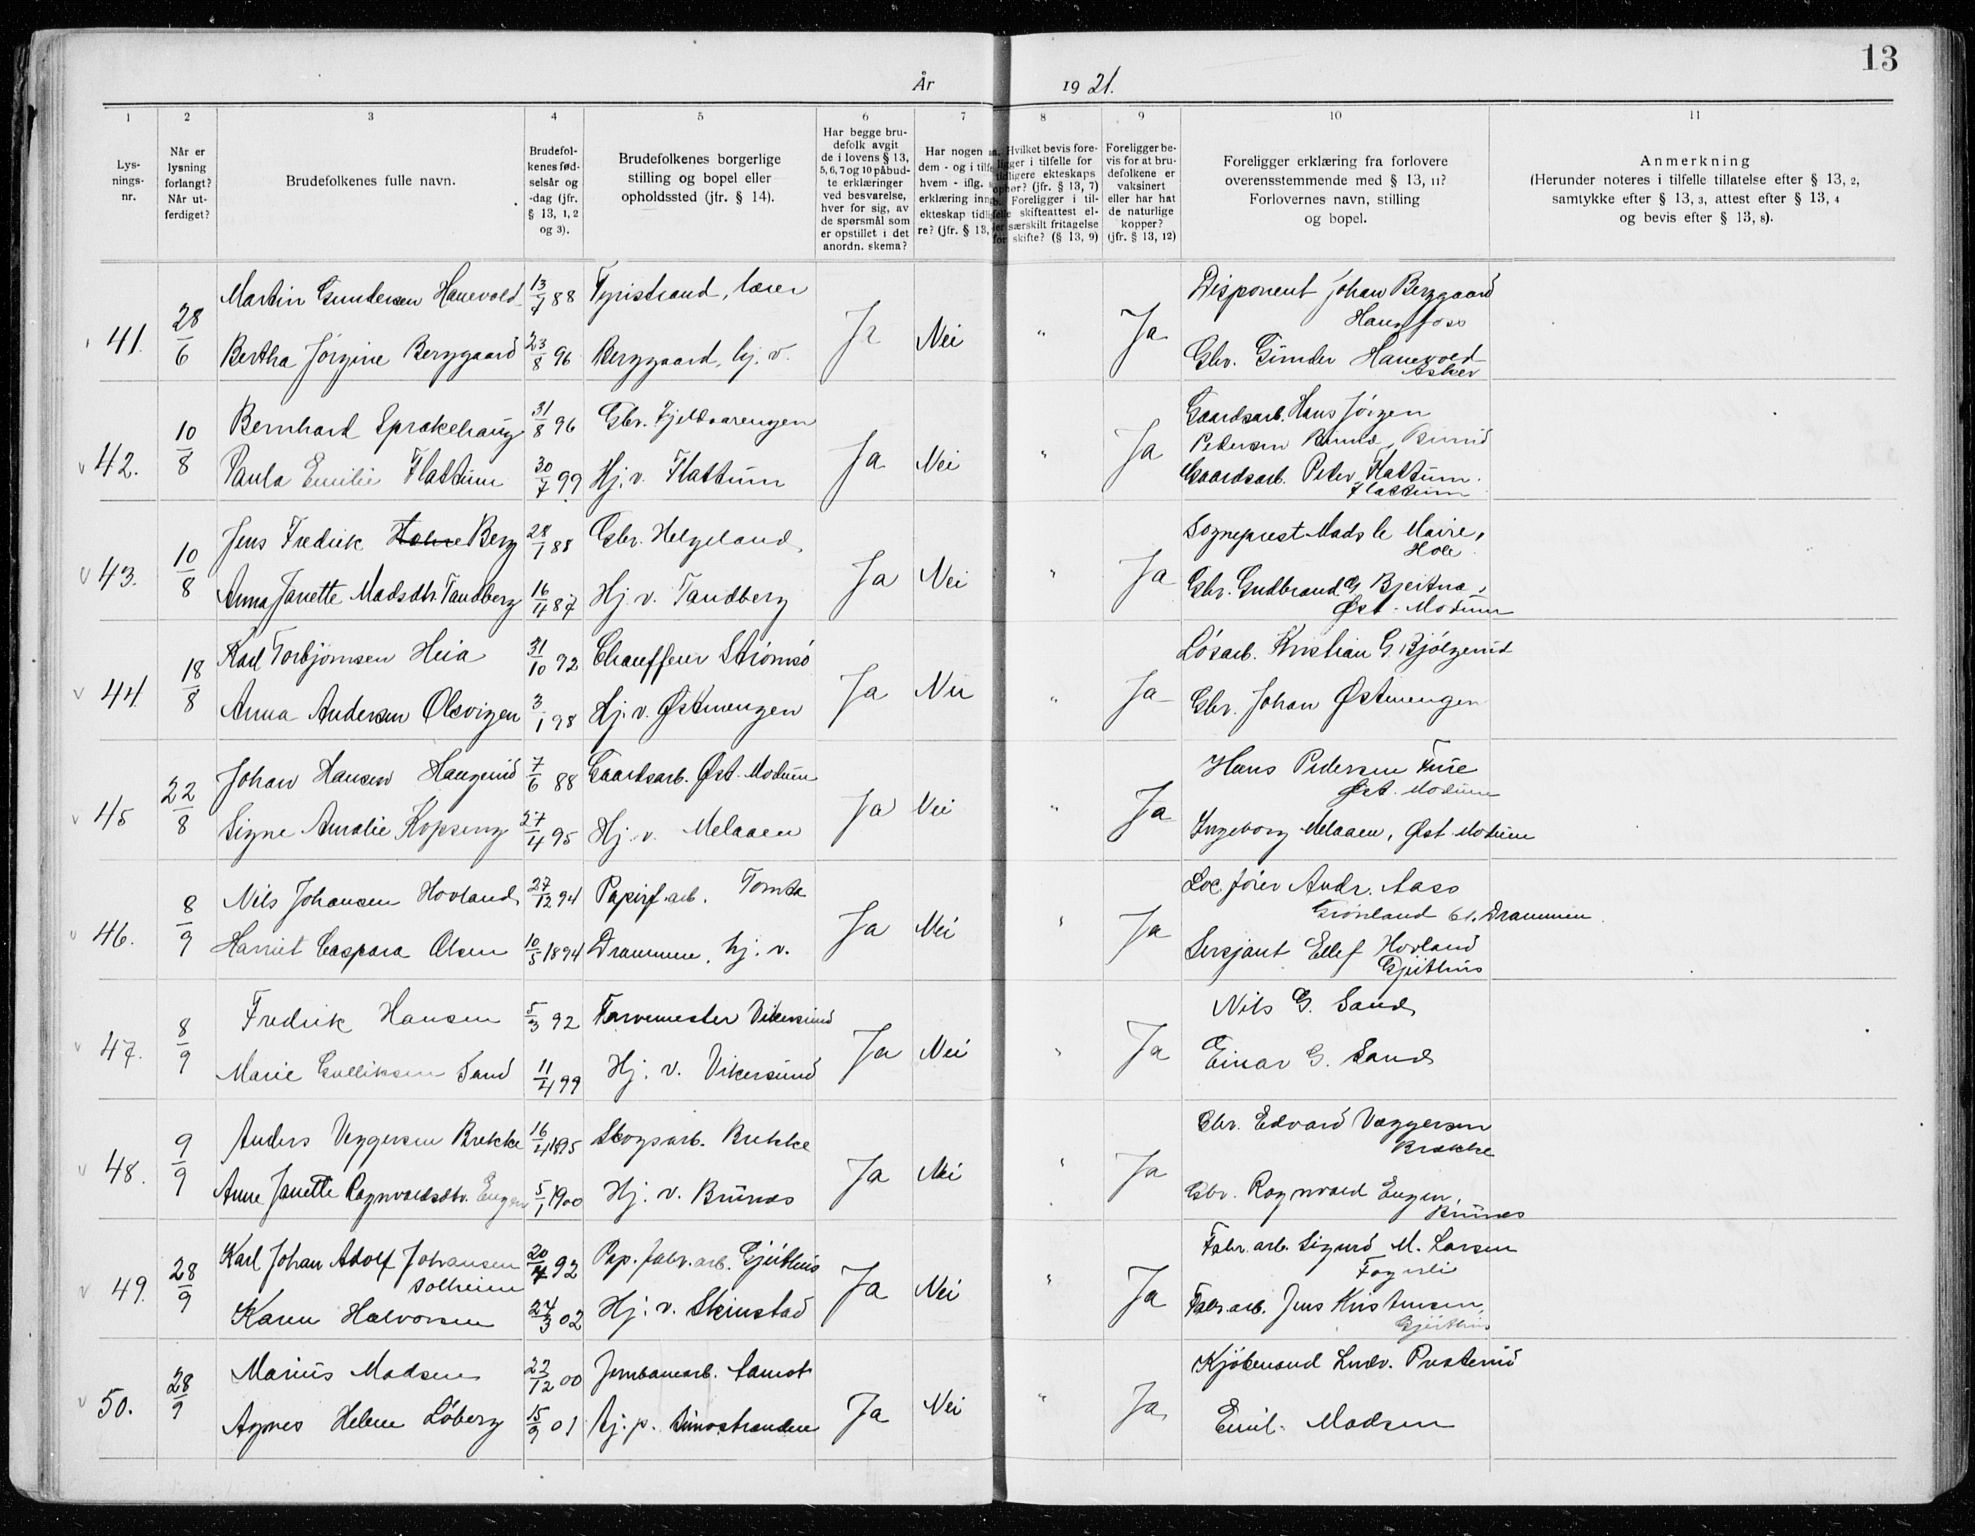 13
År 1921.
1 2 3 4 5 6 7 8 9 10 11
Lys-
nings-
nr.
Når er
lysning
forlangt?
Når ut-
ferdiget?
Brudefolkenes fulle navn.
Brudefol-
kenes fød-
selsår og
-dag (jfr.
§ 13, 1, 2
og 3).
Brudefolkenes borgerlige
stilling og bopel eller
opholdssted (jfr. § 14).
Har begge bru-
defolk avgit
de i lovens § 13,
5, 6, 7 og 10 påbud-
te erklæringer
ved besvarelse,
hver for sig, av
de spørsmål som
er opstillet i det
anordn. skema?
Har nogen av
dem - og i tilfelle
hvem - iflg.
erklæring inng.
ekteskap tidlige-
re? (jfr. § 13,
Hvilket bevis fore-
ligger i tilfelle for
tidligere ekteskaps
ophør? (jfr. § 13, 7)
Foreligger i til-
felle skifteattest el-
ler særskilt fritagelse
for skifte? (§ 13, 9)
Foreligger be-
vis for at bru-
defolkene er
vaksinert
eller har hat
de naturlige
kopper?
(jfr. § 13, 12)
Foreligger erklæring fra forlovere
overensstemmende med § 13, 11?
Forlovernes navn, stilling
og bopel.
Anmerkning
(Herunder noteres i tilfelle tillatelse efter § 13, 2,
samtykke efter § 13, 3, attest efter § 13, 4
og bevis efter § 13, 8).
Martin Gundersen Hanevold 13/4 88 Tyristrand, lærer Disponent Johan Berggaard
Hønefoss
41. 28/6 Ja Nei " Ja
Bertha Jørgine Berggaard 23/8 96 Berggaard, hj. v. Gbr. Gunder Hanevold
Asker
Bernhard Sprakehaug 31/8 96 Gbr. Fjeldvarengen Gaardsarb. Hans Jørgen
Pedersen
42. 10/8 Ja Nei " Ja
Paula Emilie Flattum 30/7 99 Hj. v. Flattum Gaardsarb. Peter Flattum.
Flattum
Jens Fredrik Berg 28/1 88 Gbr. Helgeland, Sogneprest Mads le Maire,
Hole
43. 10/8 Ja Nei " Ja
Anna Janette Madsdtr. Tandberg 16/4 87 Hj. v. Tandberg Gbr. Gudbrand G Bjertnæ,
Øst-Modum
Karl Torbjørnsen Heia 31/10 92 Chauffeur Strømsø Løsarb. Kristian G. Bjølgerud
44. 18/8 Ja Nei " Ja
Anna Andersen Olsvigen 3/1 98 Hj. v. Østmengen Gbr. Johan Østmengen
Johan Hansen Haugerud 7/6 88 Gaardsarb. Øst-Modum Hans Pedersen Fure
Øst-Modum
45 22/8 Ja Nei " Ja
Signe Amalie Kopseng 27/4 95 Hj. v. Melaaen Ingeborg Melaaen, Øst-Modum
Nils Johansen Hovland 27/12 94 Papirf.arb. Loc.fører Andr. Aass
Grønland 61. Drammen.
46. 8/9 Ja Nei " Ja
Harriet Caspara Olsen 10/5 1894 Drammen, hj. v. Sersjant Ellef Hovland
Gjeithus
Fredrik Hansen 5/3 92 Farvemester Vikersund Nils G. Sand
47. 8/9 Ja Nei " Ja
Marie Gulliksen Sand 11/4 99 Hj. v. Vikersund Einar G. Sand
Anders Veggersen Brekke 16/4 1895 Skogsarb. Brekke Gbr. Edvard Væggersen
Brække
48. 9/9 Ja Nei " Ja
Anne Janette Ragnvaldsdtr. Engen 5/1 1900 Hj. v. Bunæs Gbr. Ragnvald Engen,
Bunæs
Karl Johan Adolf Johansen 20/4 92 Pap.fabr.arb. Gjeithus Fabr.arb. Sigurd M. Larsen
Solheim Fagerli
49. 28/9 Ja Nei " Ja
Karen Halvorsen 24/3 02 Hj. v. Skinstad Fabr.arb. Jens Kristensen,
Gjeithus
Marius Madsen 22/12 00 Jernbanearb. Aamot Kjøbmand Ludv. Presterud
50. 28/9 Ja Nei " Ja
Agnes Helene Løberg 15/9 01 Hj. p. Simostranden Emil Madsen